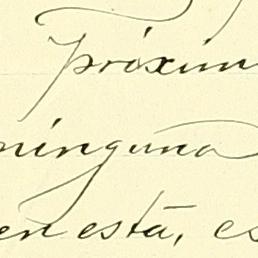 próxim
ninguna
en está, es